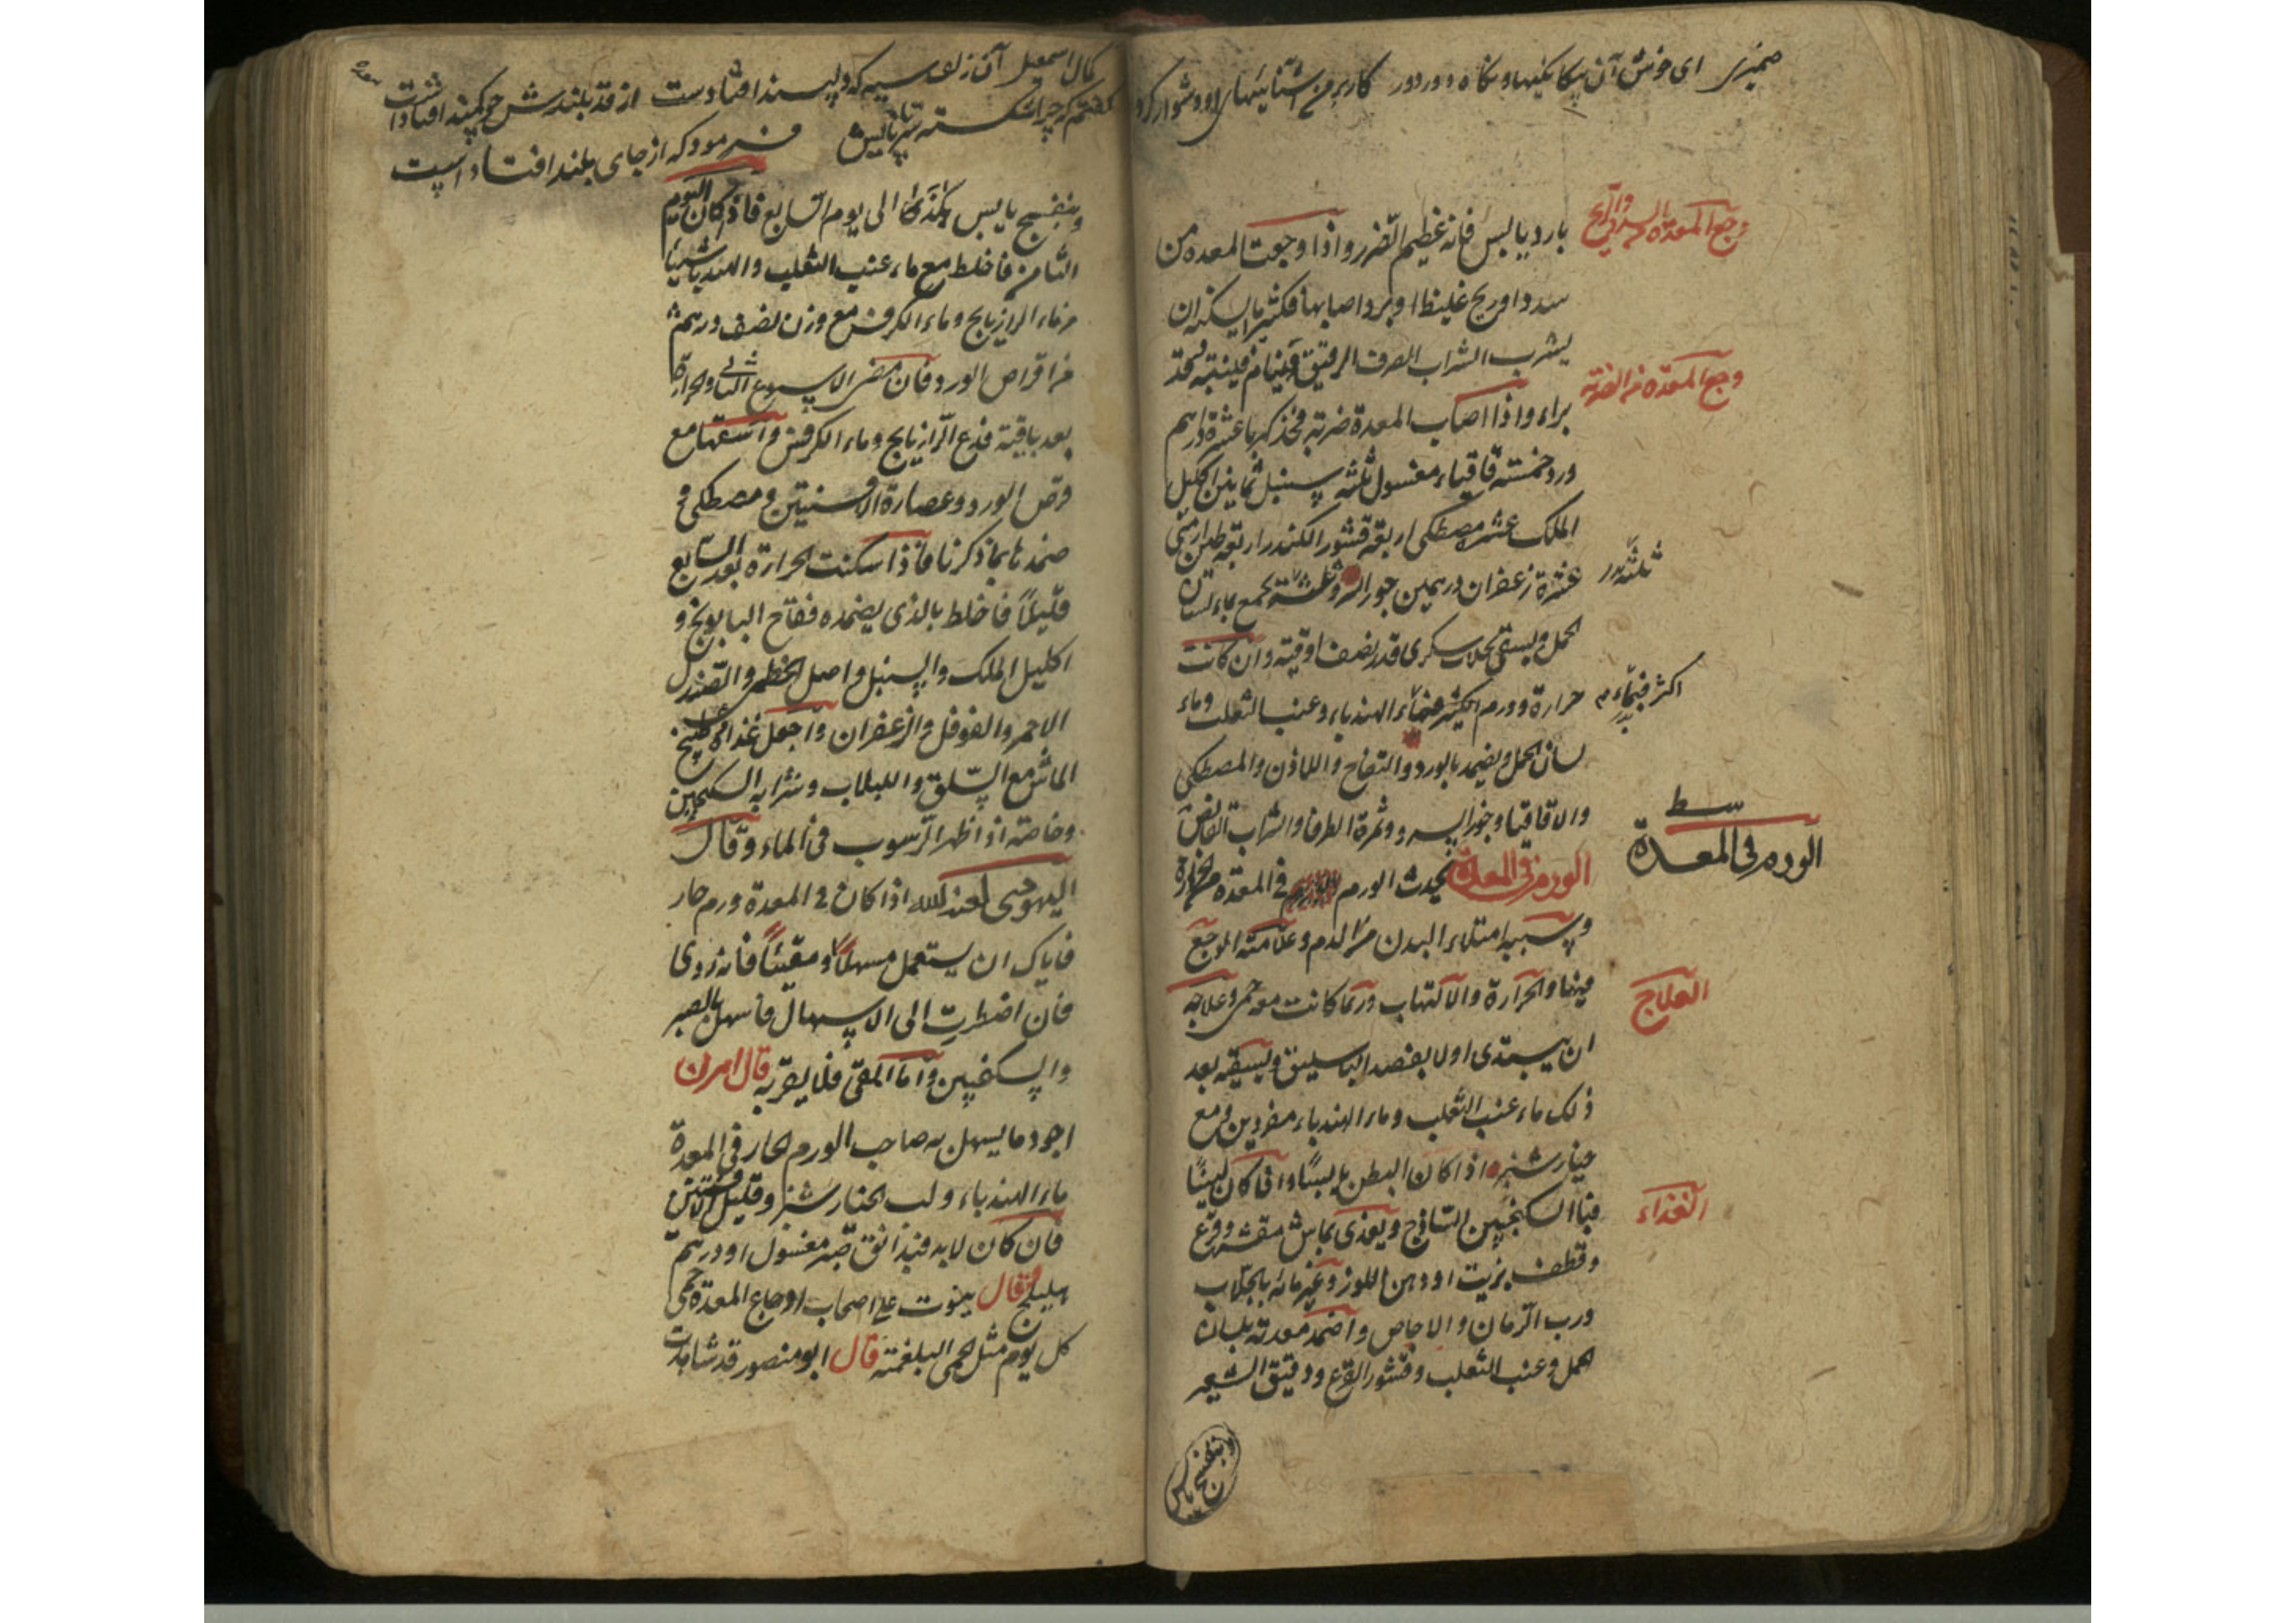 ضمیری ای خوش آن بیکانکیها و نکاه دور دور کار بر من آشناییهای او دشوار کرد
وجع المعدة والريح
بارد يابس فانه عظيم الضرر واذا وجعت المعده من
سدد او ريح غليظ او برد اصابها فكثيرا ما يسكنه ان
يشرب الشراب الصرف الرقيق فينام فينتبه قد
وجع المعدة من الضربة
براء واذا اصاب المعدة ضربة فخذ كهربا عشرة دراهم
ورد خمسة قاقيا مغسول ثلثة سنبل ثمانية اكليل
الملك عشر مصطكى اربعة قشور الكندر اربعة طين ارمنى
عشرة زعفران درهمين جوز السرو ثلثة يجمع بماء لسان
الحمل ويسقى بجلاب سكرى قدر نصف اوقية وان كانت
حرارة وورم اكثر فبماء الهندباء وعنب الثعلب وماء
لسان الحمل ويضمد بالورد والتفاح واللاذن والمصطكى
والاقاقيا وجوز السرو وثمرة الطرفا والشراب القابض
الورم فى المعدة
الورم فى المعدة يحدث الورم فى المعدة من الحرارة
وسببه امتلاء البدن من الدم وعلامته الوجع
فيها والحرارة والالتهاب وربما كانت معه حمى وعلاجه
العلاج
ان يبتدى اولا بفصد الباسليق ويسقيه بعد
ذلك ماء عنب الثعلب وماء الهندباء مفردين ومع
خيار شنبر اذا كان البطن يابسًا وان كان لينًا
الغذاء
فبالسكنجبين الساذج ويغذى بماش مقشر وقرع
وقطف بزيت او دهن اللوز وغير مائه بالجلاب
ورب الرمان والاجاص واضمد معدته بلسان
الحمل وعنب الثعلب وقشور القرع ودقيق الشعير
وبنفسج يابس
کمال اسمعیل آن زلف سیه که دلپسند افتادست از قد بلندش چو کمند افتادست
کفتم که چرا شکسته فرمود که از جای بلند افتادست
وبنفسج يابس هكذى الى يوم السابع فاذا كان اليوم
الثامن فاخلط مع ماء عنب الثعلب والهندبا شيئا
من ماء الرازيانج وماء الكرفس مع وزن نصف درهم
من اقراص الورد فان مضى الاسبوع الثانى والحرارة
بعد باقية فدع الرازيانج وماء الكرفس واسقها مع
قرص الورد وعصارة الافسنتين ومصطكى و
ضمدها بما ذكرنا فاذا سكنت الحرارة بعد السابع
قليلًا فاخلط بالذى يضمده فقاح البابونج و
اكليل الملك والسنبل واصل الخطمى والصندل
الاحمر والفوفل والزعفران واجعل غذاه طبيخ
الماش مع السلق واللبلاب وشرابه السكنجبين
وخاصة اذا ظهر الرسوب فى الماء وقال
اليهودى لعنه الله اذا كان فى المعدة ورم حار
فاياك ان يستعمل مسهلًا ومقيئًا فانه ردى
فان اضطررت الى الاسهال فاسهل بالصبر
والسكنجبين واما المقى فلا يقربه قال اهرن
اجود ما يسهل به صاحب الورم الحار فى المعدة
ماء الهندباء ولب الخيار شنبر وقليل افسنتين
فان كان لابد فبدانق صبر مغسول او درهم
هليلج قال ينوب على اصحاب اوجاع المعدة حمى
كل يوم مثل الحمى البلغمية قال ابو منصور قد شاهدت